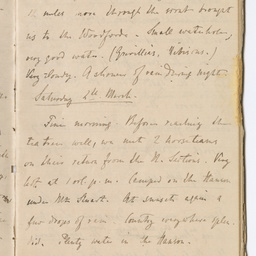 12 miles more through the scrub brought
us to the Woodforde. Small waterhole,
very good water. (Grevillias, Hibiscus.)
Very cloudy. A shower of rain during night.
Saturday 2th March.
Fine morning. Before reaching the
tea tree well, we met 2 horsemen
on their return from the N. Very
hot at 1 p.m. Camped on the Hanson
under Mt. Stuart. At sunset again a
few drops of rain. Country everywhere splen
did. Plenty water in the Hanson.